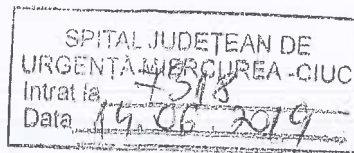 SPITAL JUDEŢEAN DE
URGENŢĂ MIERCUREA-CIUC
Intrat la 7518
Data 14 06 2019